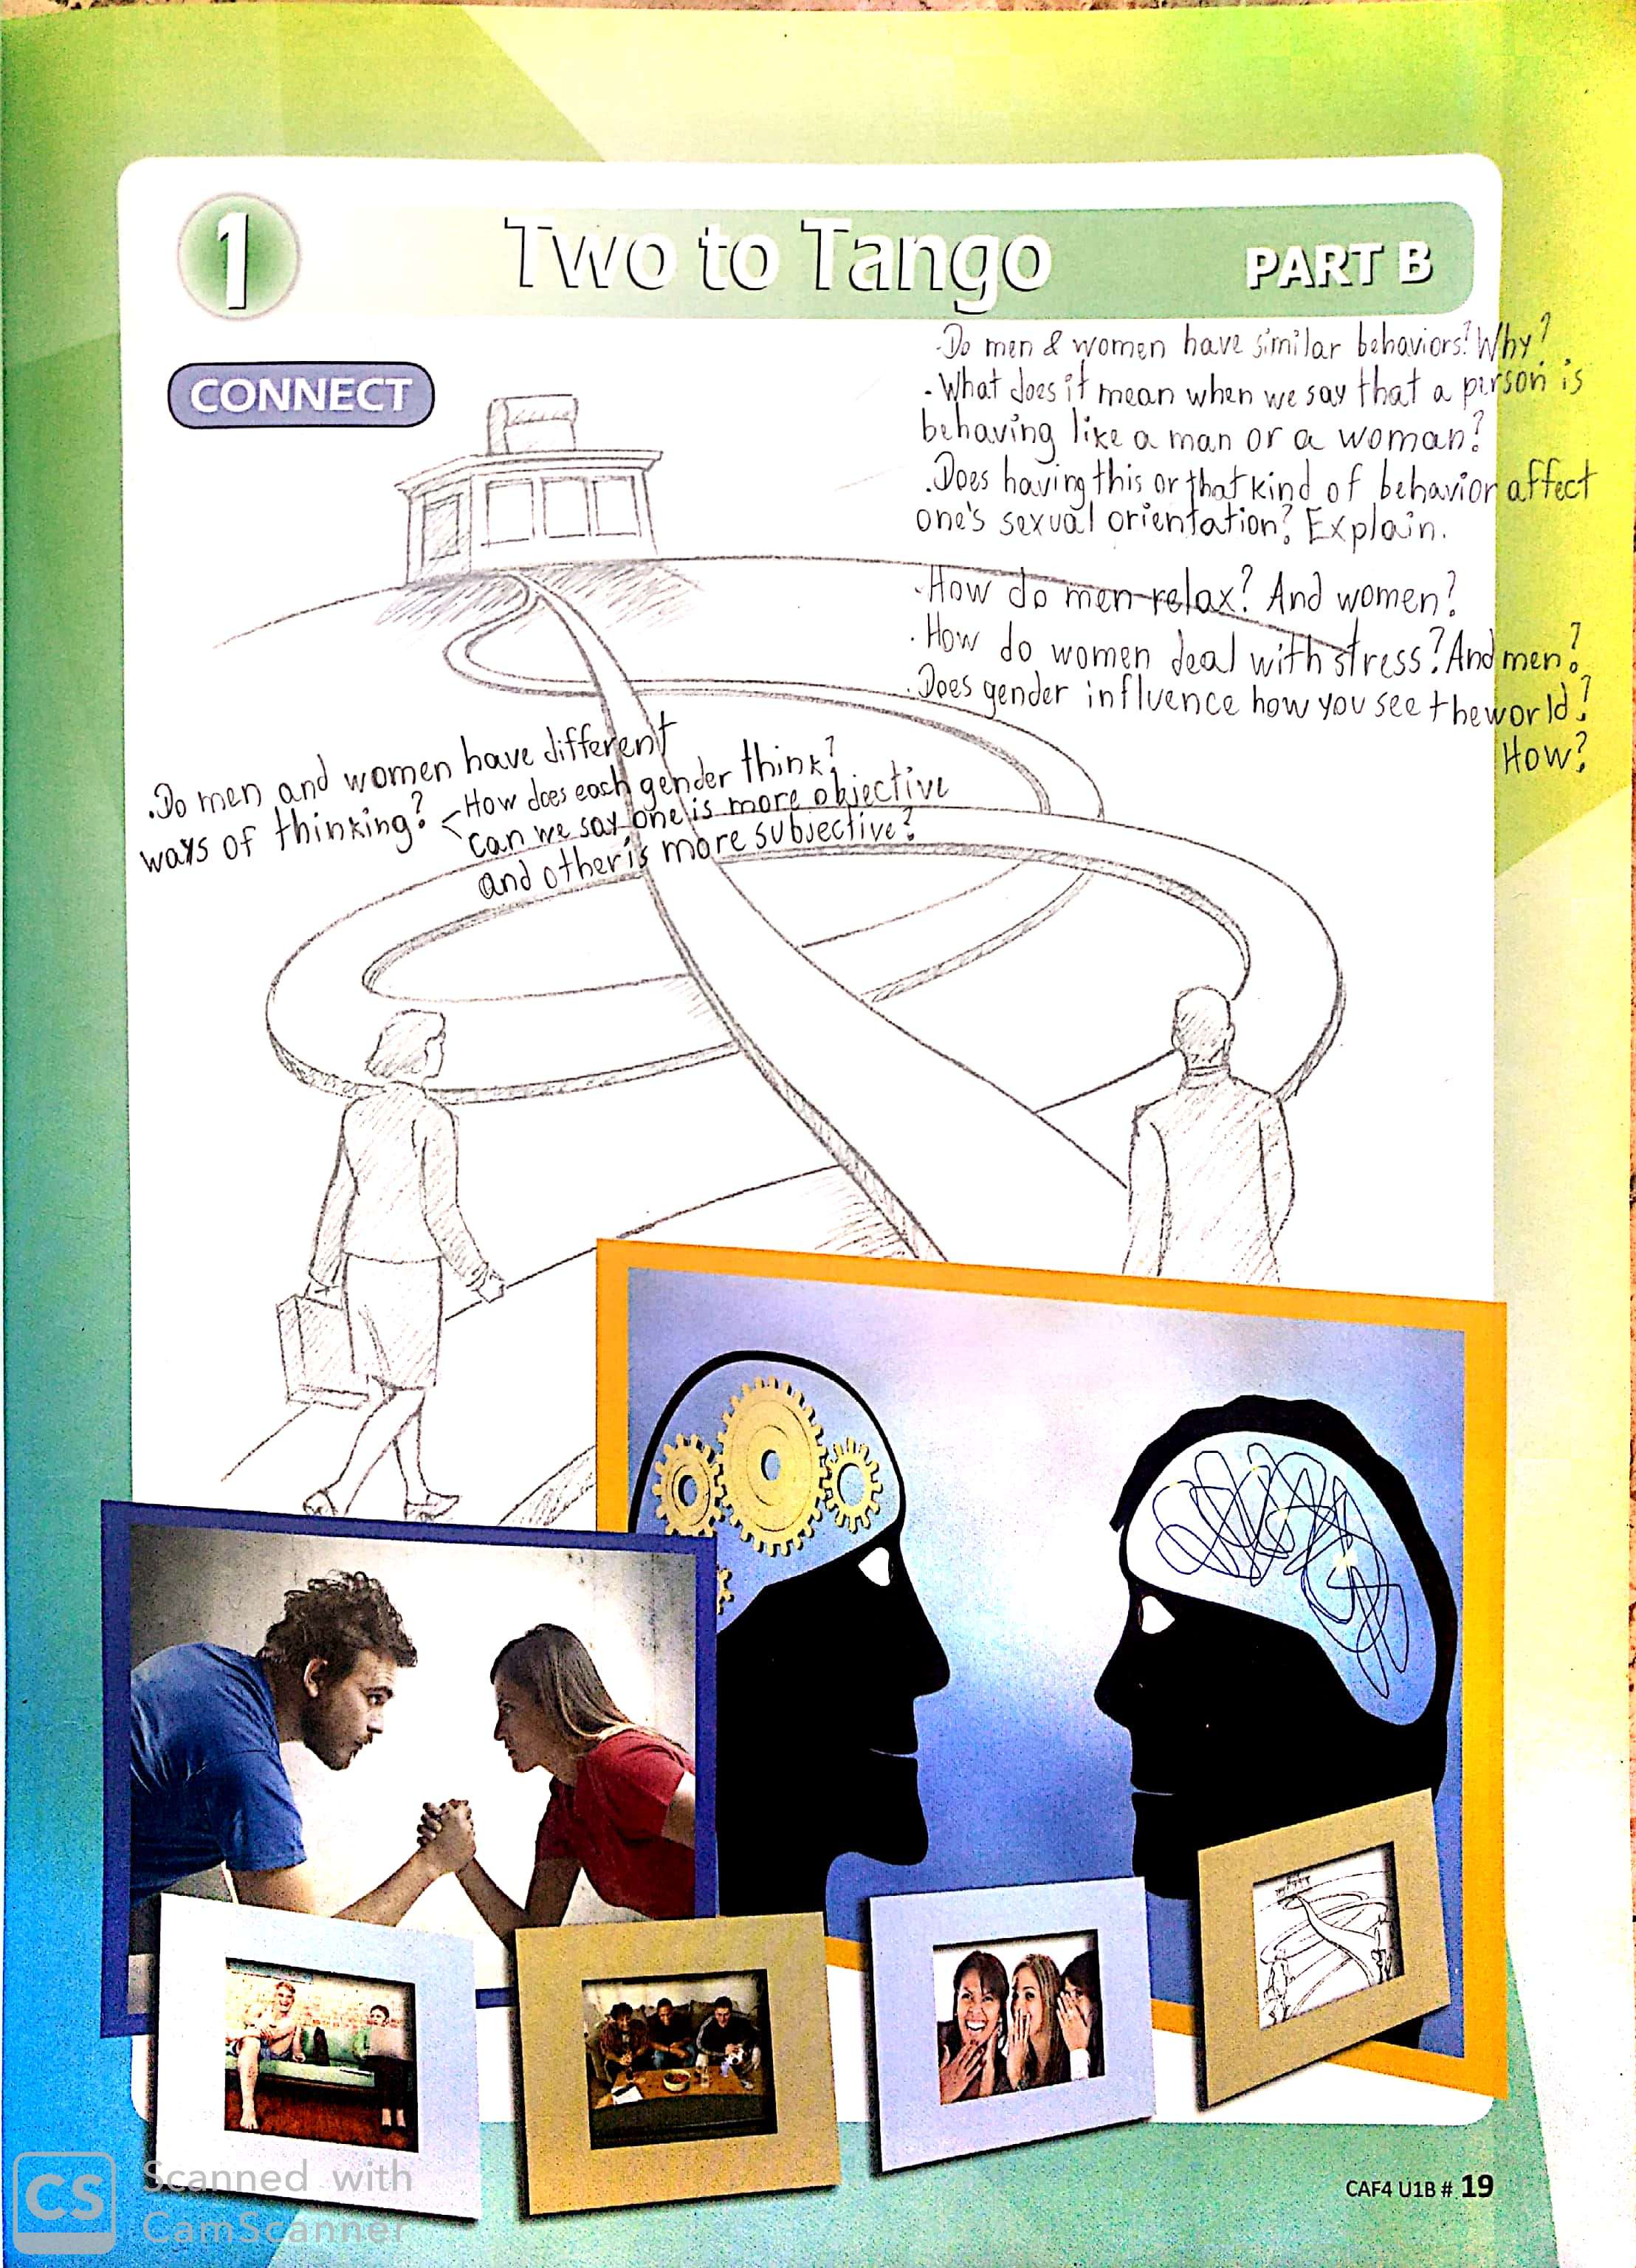 1
Two to Tango
PART B
CONNECT
.Do men & women have similar behaviors? Why?
.What does it mean when we say that a person is
behaving like a man or a woman?
.Does having this or that kind of behavior affect
one's sexual orientation? Explain.
.How do men relax? And women?
.How do women deal with stress? And men?
.Does gender influence how you see the world?
How?
.Do men and women have different
ways of thinking?
How does each gender think?
can we say one is more objective
and other is more subjective?
CS
Scanned with
CamScanner
CAF4 U1B # 19